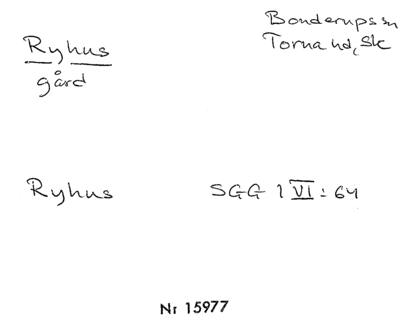 Ryhus
gård
Bonderups sn
Torna hd, Sk
Ryhus SGG 1 VI: 64
Nr 15977